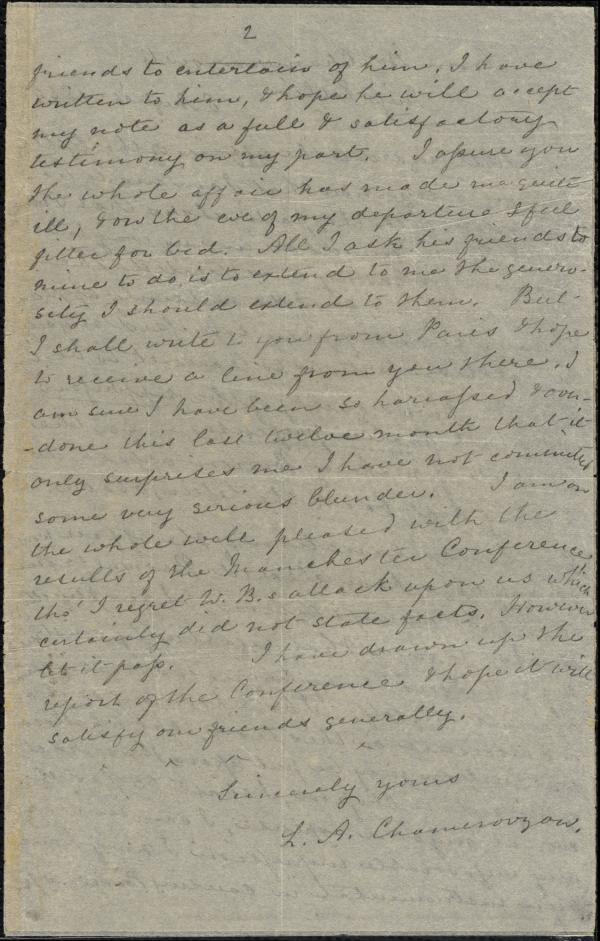 2
friends to entertain of him. I have
written to him, & hope he will accept
my note as a full & satisfactory
testimony on my part. I assure you
the whole affair has made me quite
ill, & on the eve of my departure I feel
fitter for bed. All I ask his friends to
mine to do, is to extend to me the genero-
sity I should extend to them. But
I shall write to you from Paris & hope
to receive a line from you there. I
am sure I have been so harrassed & over-
-done this last twelve month that it
only surprises me I have not committed
some very serious blunder. I am on
the whole well pleased with the
results of the Manchester Conference
tho' I regret W. B.s attack upon us which
certainly did not state facts. However
let it pass. I have drawn up the
report of the Conference & hope it will
satisfy our friends generally.
Sincerely yours
L. A. Chamerovzow.